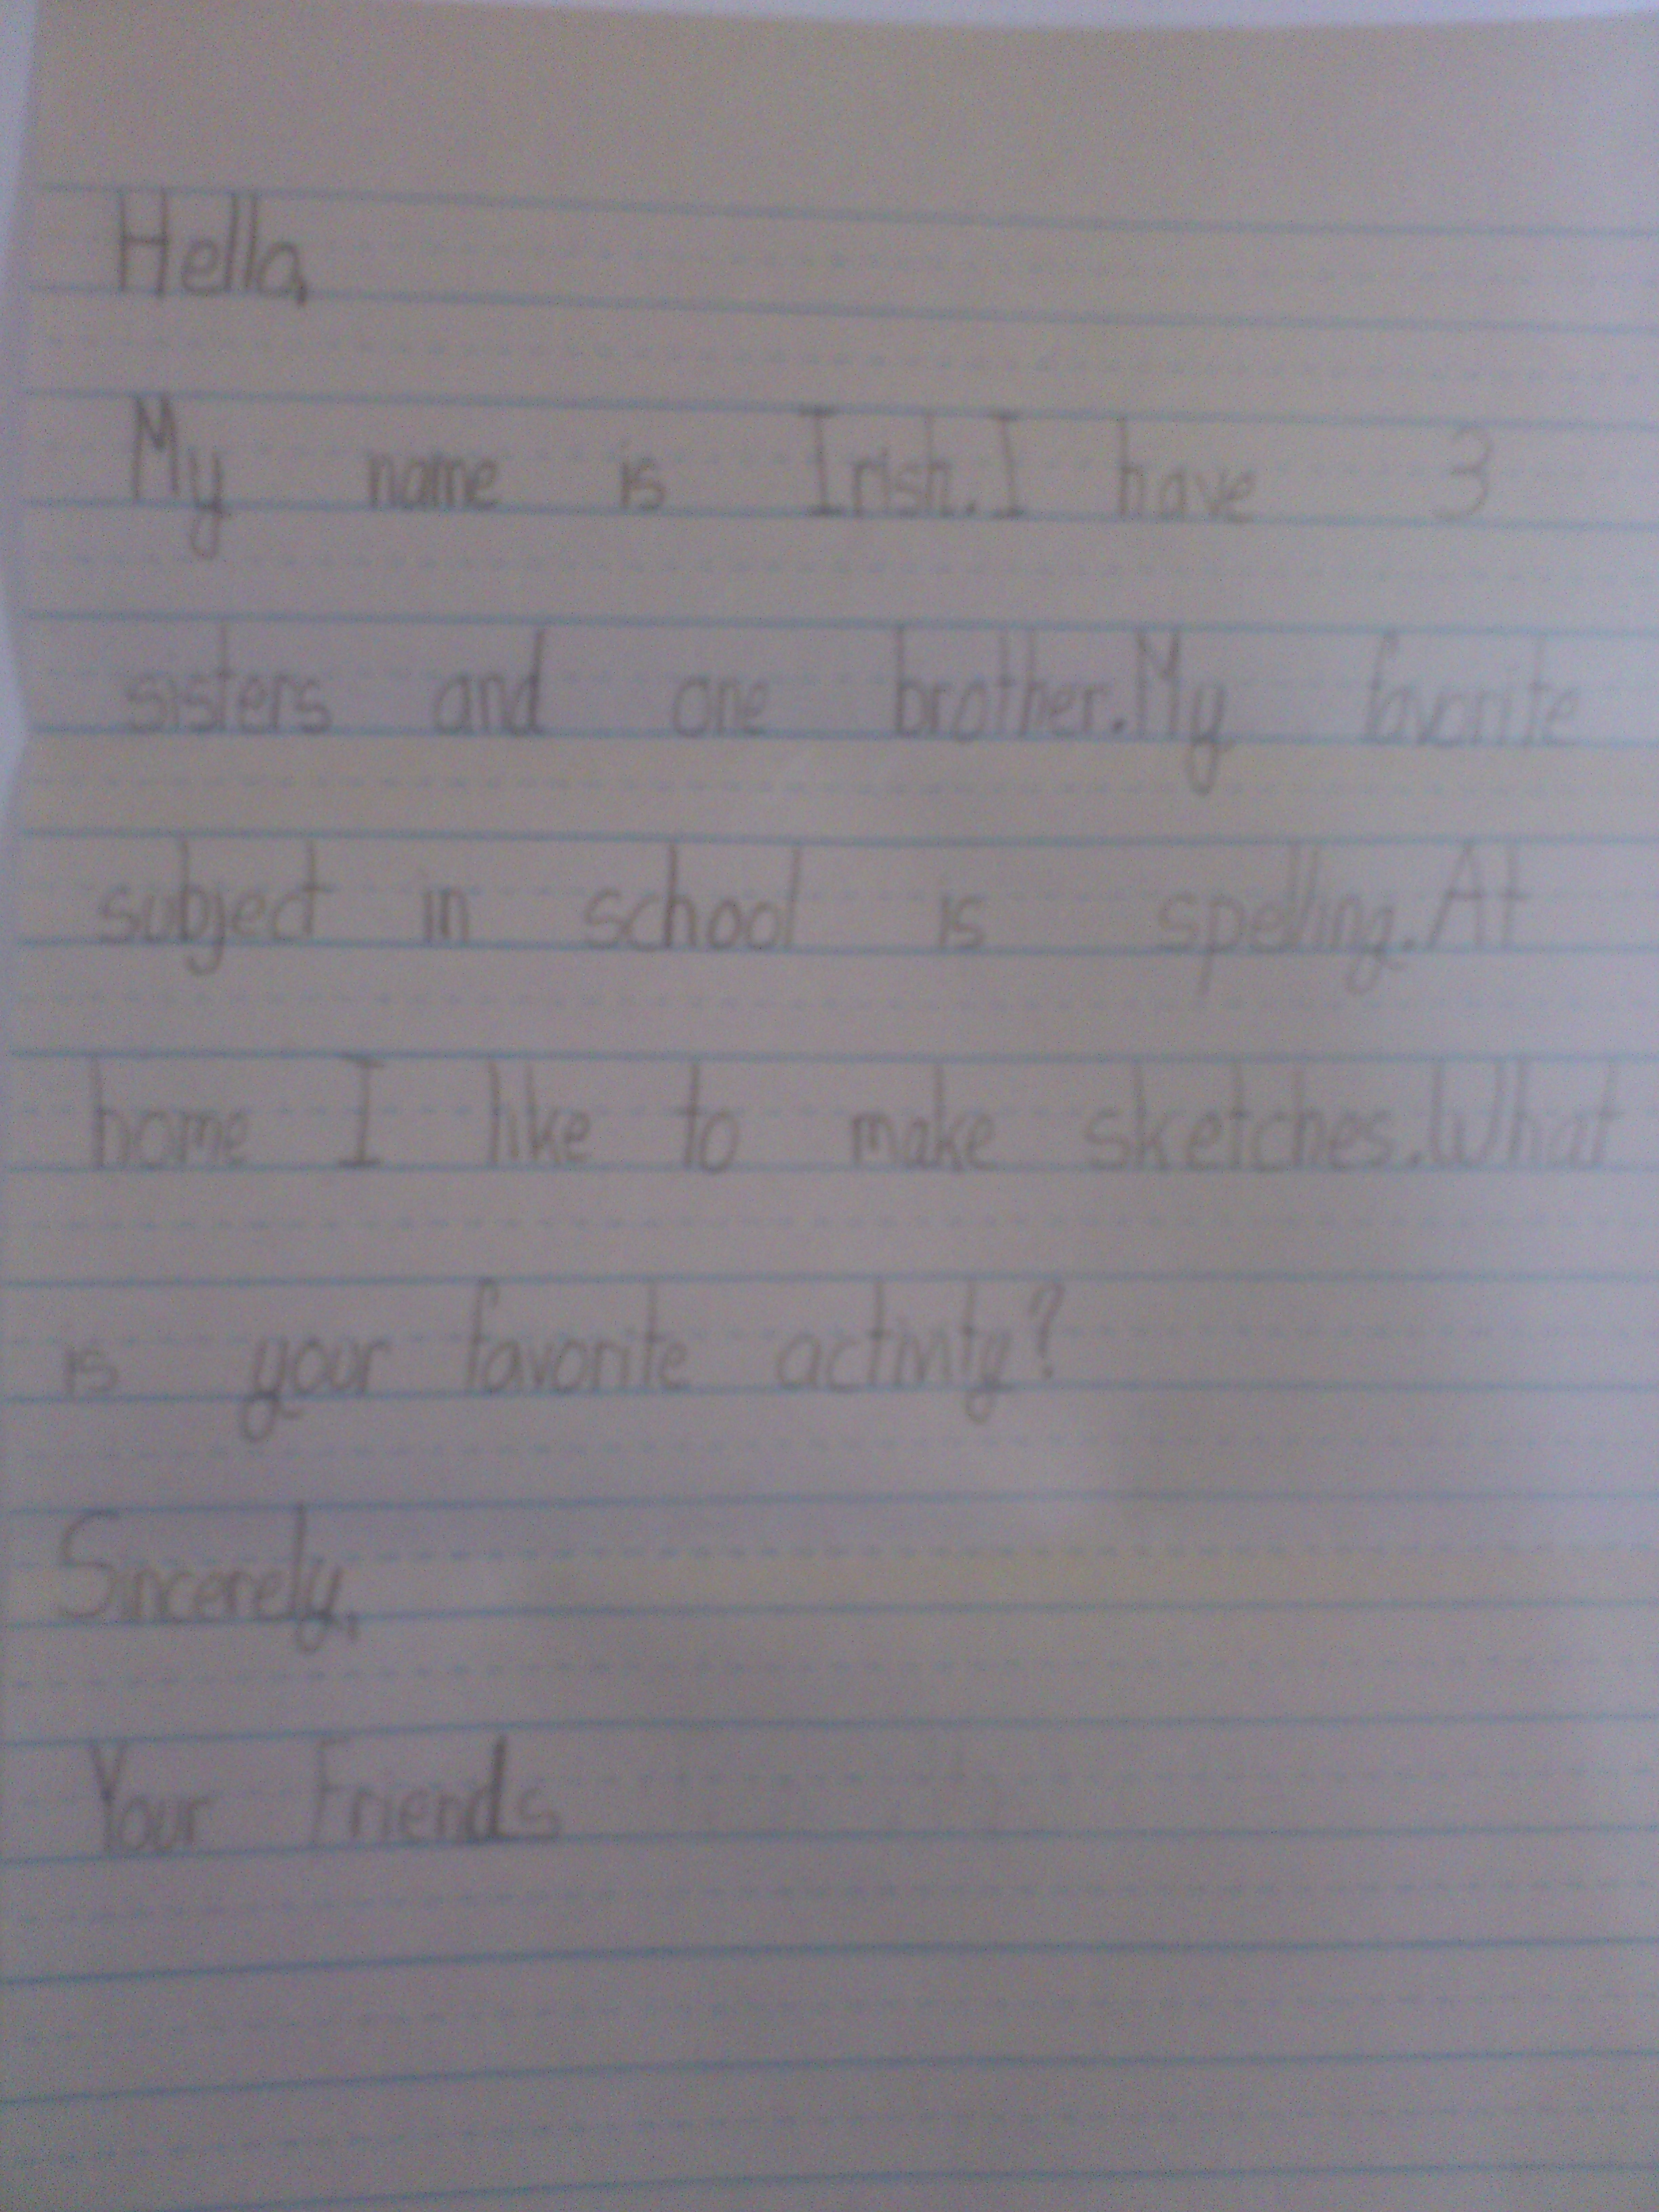 Hello,
My name is Irish. I have 3
sisters and one brother. My favorite
subject in school is spelling. At
home I like to make sketches. What
is your favorite activity?
Sincerely,
Your Friends